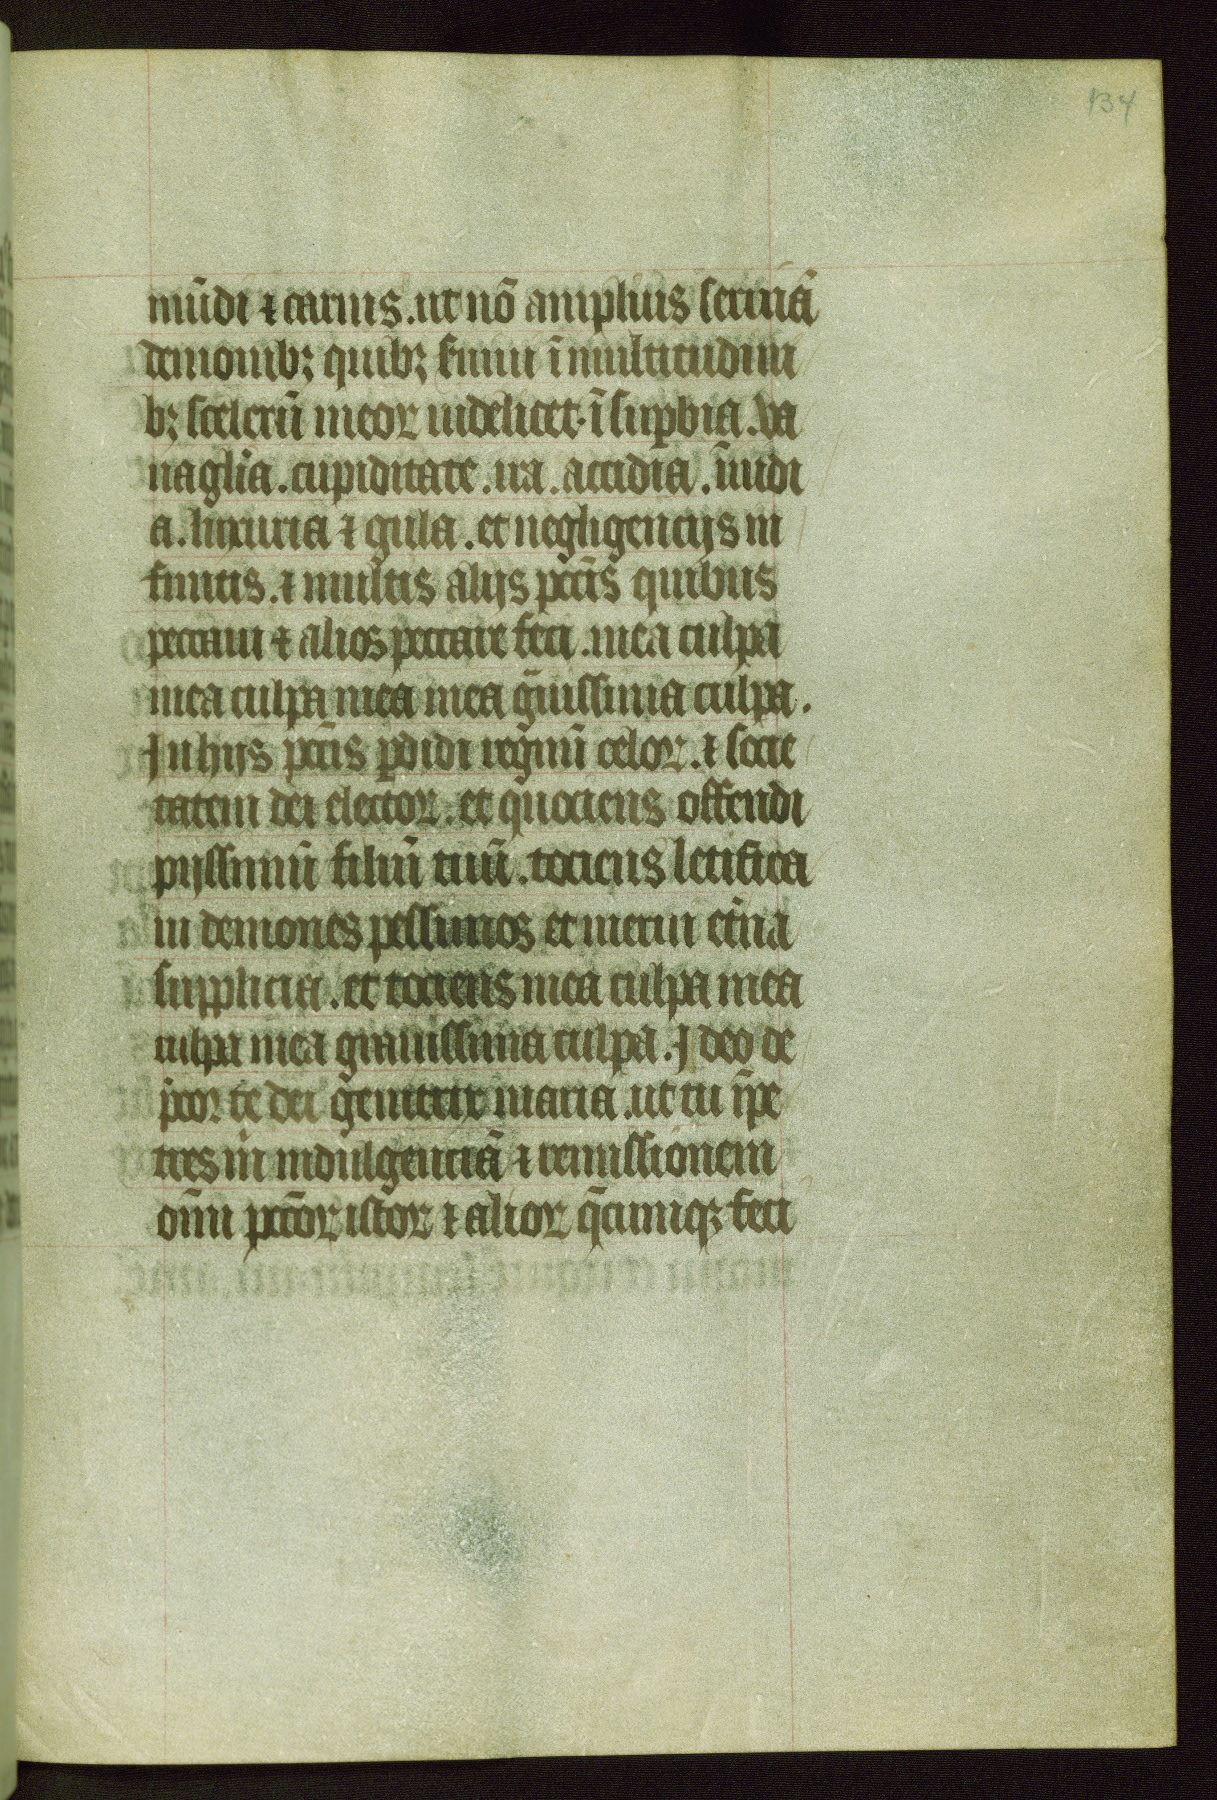 134
mūdi ⁊ carnis. ut nō amplius seruiā
demonibꝫ quibꝫ seruiui ī multitudini
bꝫ scelerū meoꝝ uidelicet. ī suꝑbia. va
naglīa. cupiditate. ira. accidia. īuidi
a. luxuria ⁊ gula. et negligencijs in
finitis. ⁊ multis alijs pccīs quibus
peccaui ⁊ alios peccare feci. mea culpa
mea culpa mea mea gͣuissima culpa.
In hijs pccīs ꝑdidi regnū celoꝝ. ⁊ socie
tatem dei electoꝝ. et quociens offendi
pijssimū filiū tuū. tociens letifica
ui demones pessimos et merui et̄na
supplicia. et tociens mea culpa mea
culpa mea grauissima culpa. Ideo de
p̄coꝛ te dei genitrix maria. ut tu īpe
tres m̄ indulgenciā ⁊ remissionem
om̄i pccōꝝ istoꝝ ⁊ alioꝝ q̄cumqꝫ feci